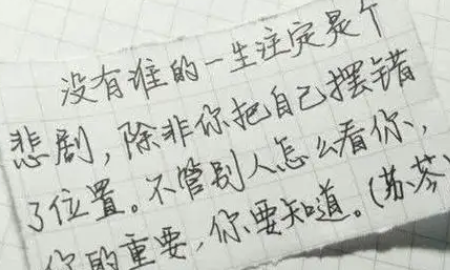 没有谁的一生注定是个
悲剧，除非你把自己摆错
了位置。不管别人怎么看你，
你的重要，你要知道。(苏芩)